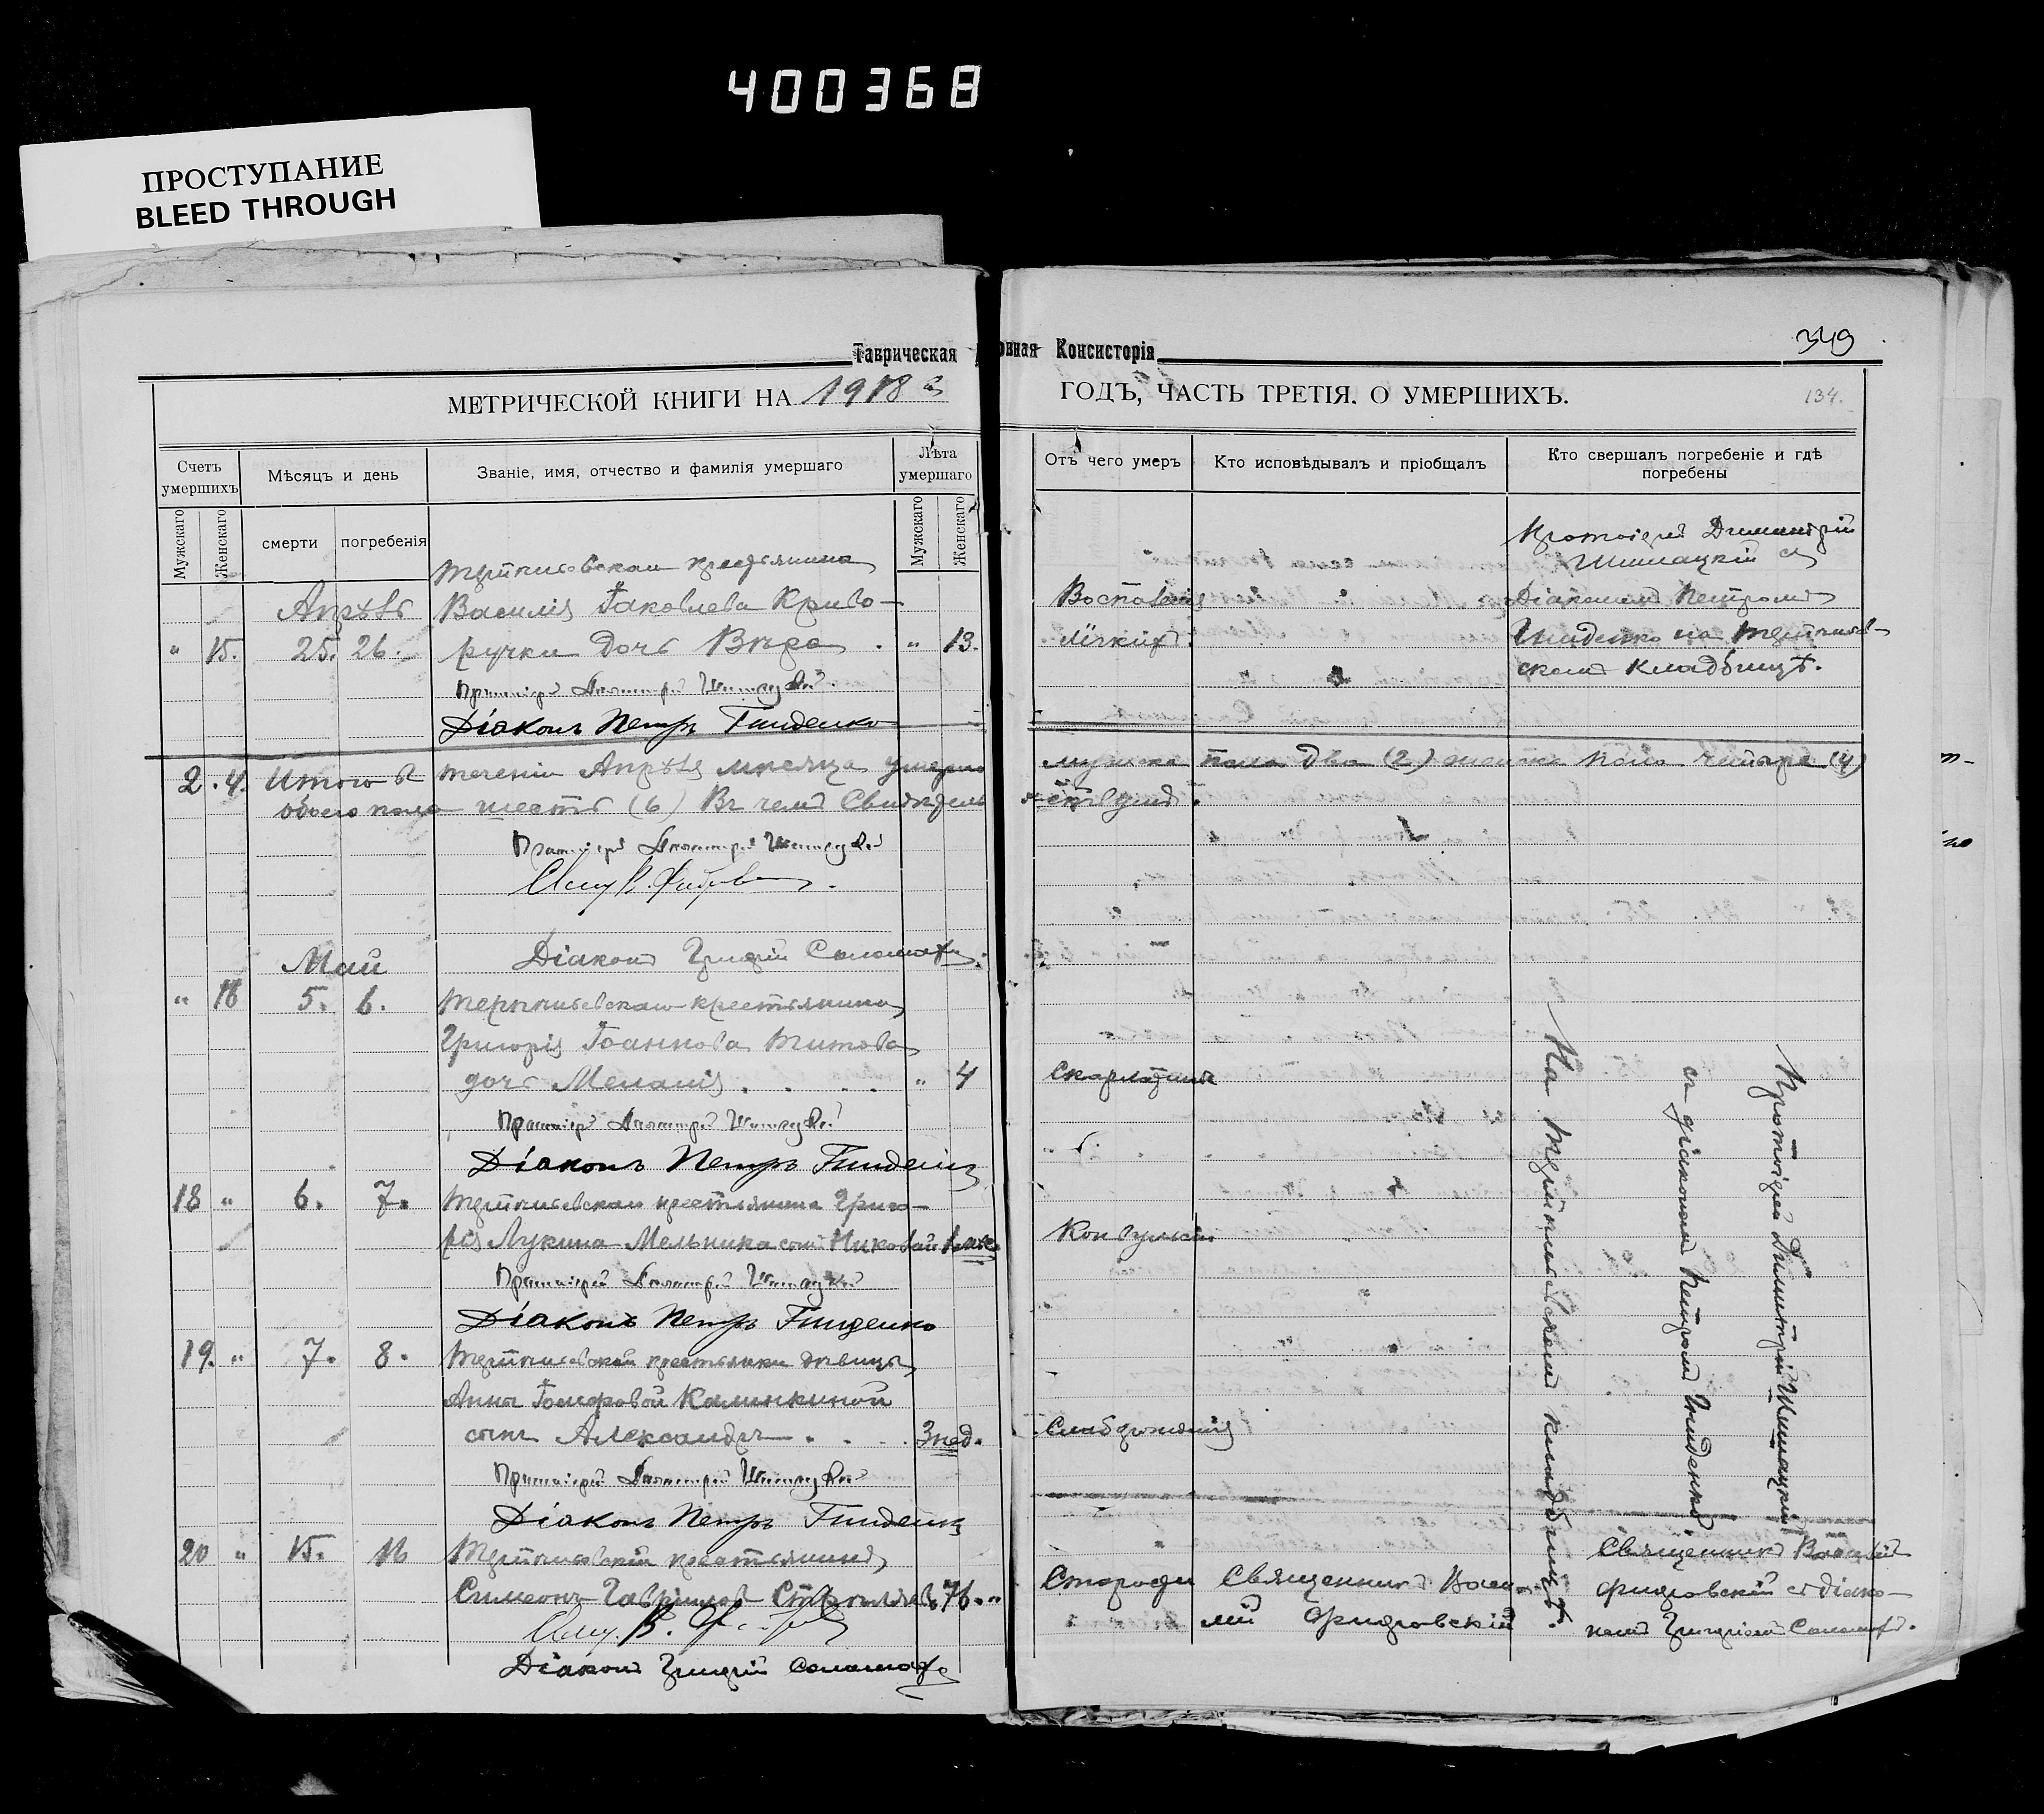 400368
ПРОСТУПАНИЕ
BLEED THROUGH
Таврическая овная Консисторія
349
МЕТРИЧЕСКОЙ КНИГИ НА 1918 г
ГОДЪ, ЧАСТЬ ТРЕТІЯ. О УМЕРШИХЪ.
134.
Счетъ умершихъ
Мѣсяцъ и день
Званіе, имя, отчество и фамилія умершаго
Лѣта умершаго
Отъ чего умеръ
Кто исповѣдывалъ и пріобщалъ
Кто свершалъ погребеніе и гдѣ погребены
Мужскаго
Женскаго
смерти
погребенія
Мужскаго
Женскаго
крестьянина
Протоіерей Димитрій
Шишацкій съ
Апрѣль Василія Іаковлева Криво-
Воспаленія Діакономъ Петромъ
" 15. 25. 26. ручки дочь Вѣра . " 13.
лёгкихъ. на
скомъ кладбищѣ.
Протоіерей Димитрій Шишацкій.
Діаконъ Петръ Гниденко
2. 4. Итого въ теченіи Апрѣля мѣсяца умерло мужска пола два (2) женска пола четыре (4)
обоего пола шесть (6) въ чемъ свидѣтель-
ствуемъ.
Протоіерей Димитрій Шишацкій
Свящ. В.
Діаконъ Григорій
Май
" 16 5. 6. крестьянина
Григорія Іоаннова Титова
дочь Меланія . . . . " 4
Скарлатины
Протоіерей Димитрій Шишацкій
Діаконъ Петръ Гниденко
18 " 6. 7. крестьянина Григо-
рія Лукина Мельника сынъ Николай
Протоіерей Димитрій Шишацкій
Діаконъ Петръ Гниденко
19. " 7. 8. крестьянки дѣвицы
Анны Іосифовой Калинкиной
сынъ Александръ . . . 3 нед.
Протоіерей Димитрій Шишацкій
Діаконъ Петръ Гниденко
Протоіерей Димитрій Шишацкій
съ діакономъ Петромъ Гниденко
На кладбищѣ.
20 " 15. 16 крестьянинъ
Симеонъ Гавріиловъ 76. "
Старости Священникъ Васи-
лій
Священникъ Василій
съ діако-
номъ Григоріемъ
Свящ. В.
Діаконъ Григорій